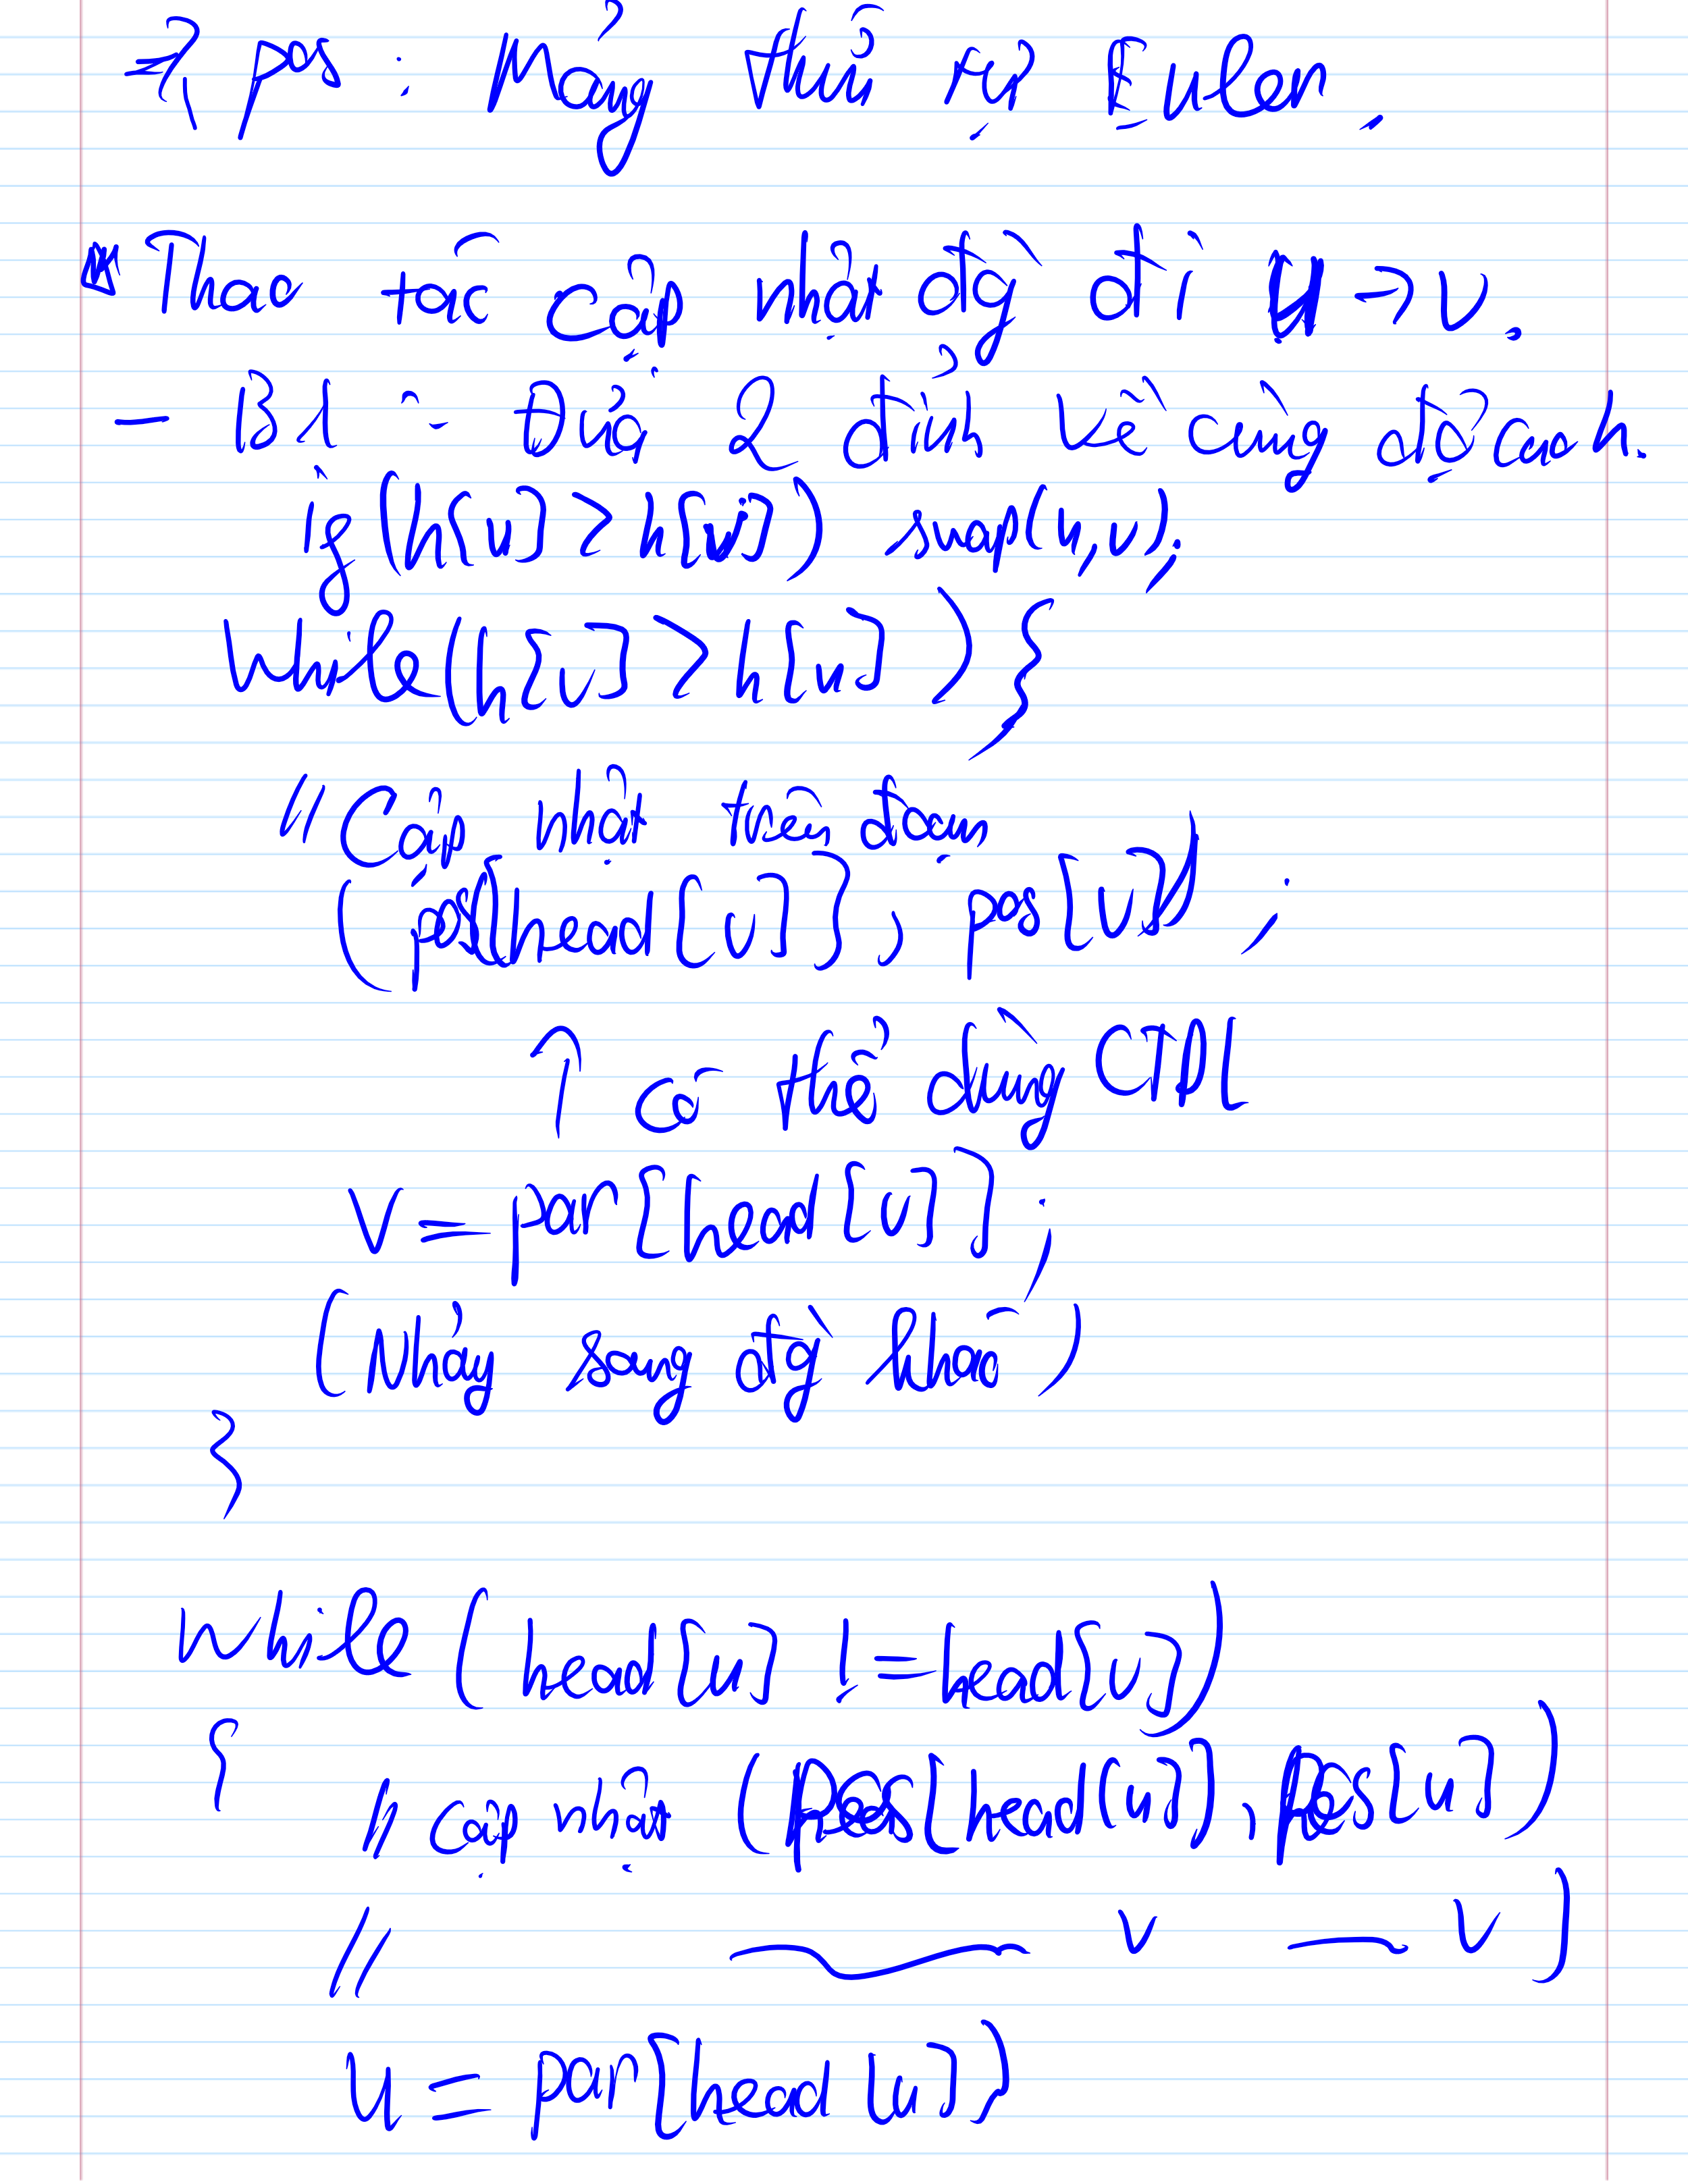 => pos : Mảng thứ tự Euler.
Thao tác cập nhật đg đi u -> v.
- B1 : Đưa 2 đỉnh về cùng độ cao h.
if (h[u] > h[v]) swap(u,v);
while(h[v] > h[u]) {
// Cập nhật trên đoạn
(pos[head[v]], pos[v]) ;
↑ có thể dùng CTDL
v = par[head[v]];
(Nhảy sang đg khác)
}
while (head[u] != head[v])
{
// cập nhật (pos[head[u]], pos[u])
// v v)
u = par[head[u]]